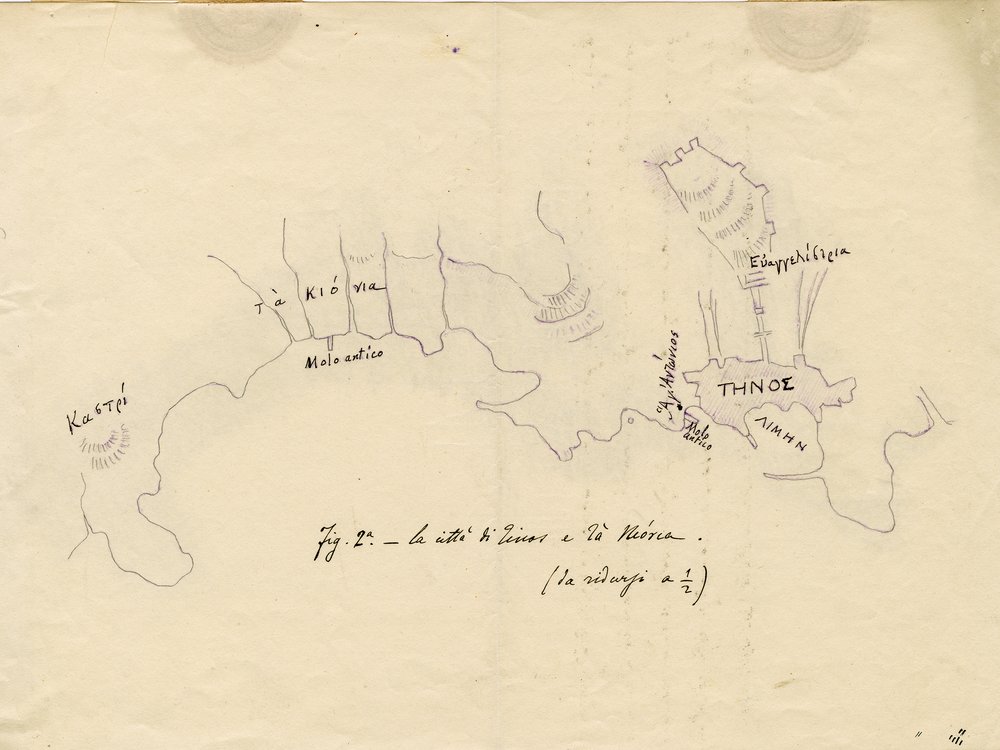 Εὐαγγελίστρια
Τὰ Κιόνια
Molo antico
Ἅγ. Ἀντώνιος
ΤΗΝΟΣ
Καστρί
ΛΙΜΗΝ
Molo
antico
Fig. 2ª. — la città di Tinos e Tà Kiónia.
(da ridursi a 1/2)